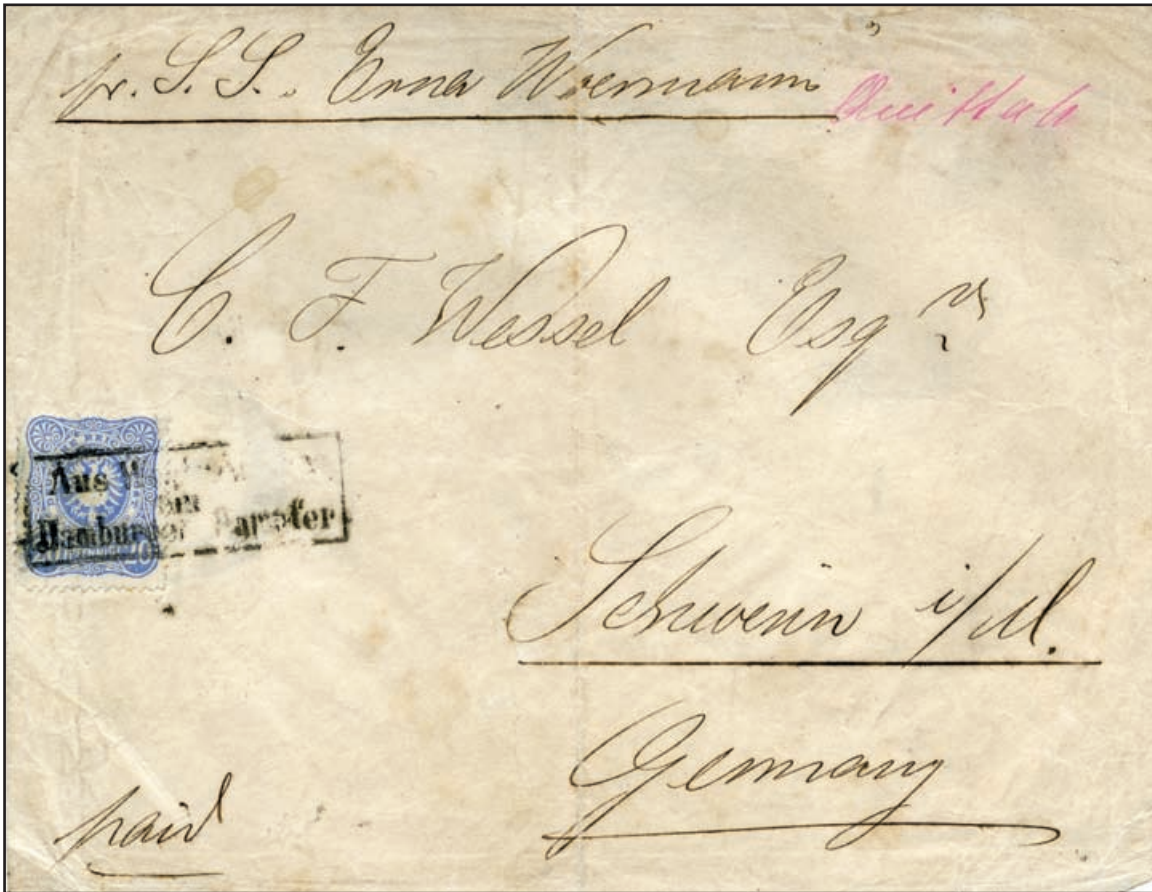 pr. S. S. Erna Woermann
Quittah
C. F. Wessel Esqre
Aus
Hamburger Dampfer
20
Schwerin i/M.
Germany
paid